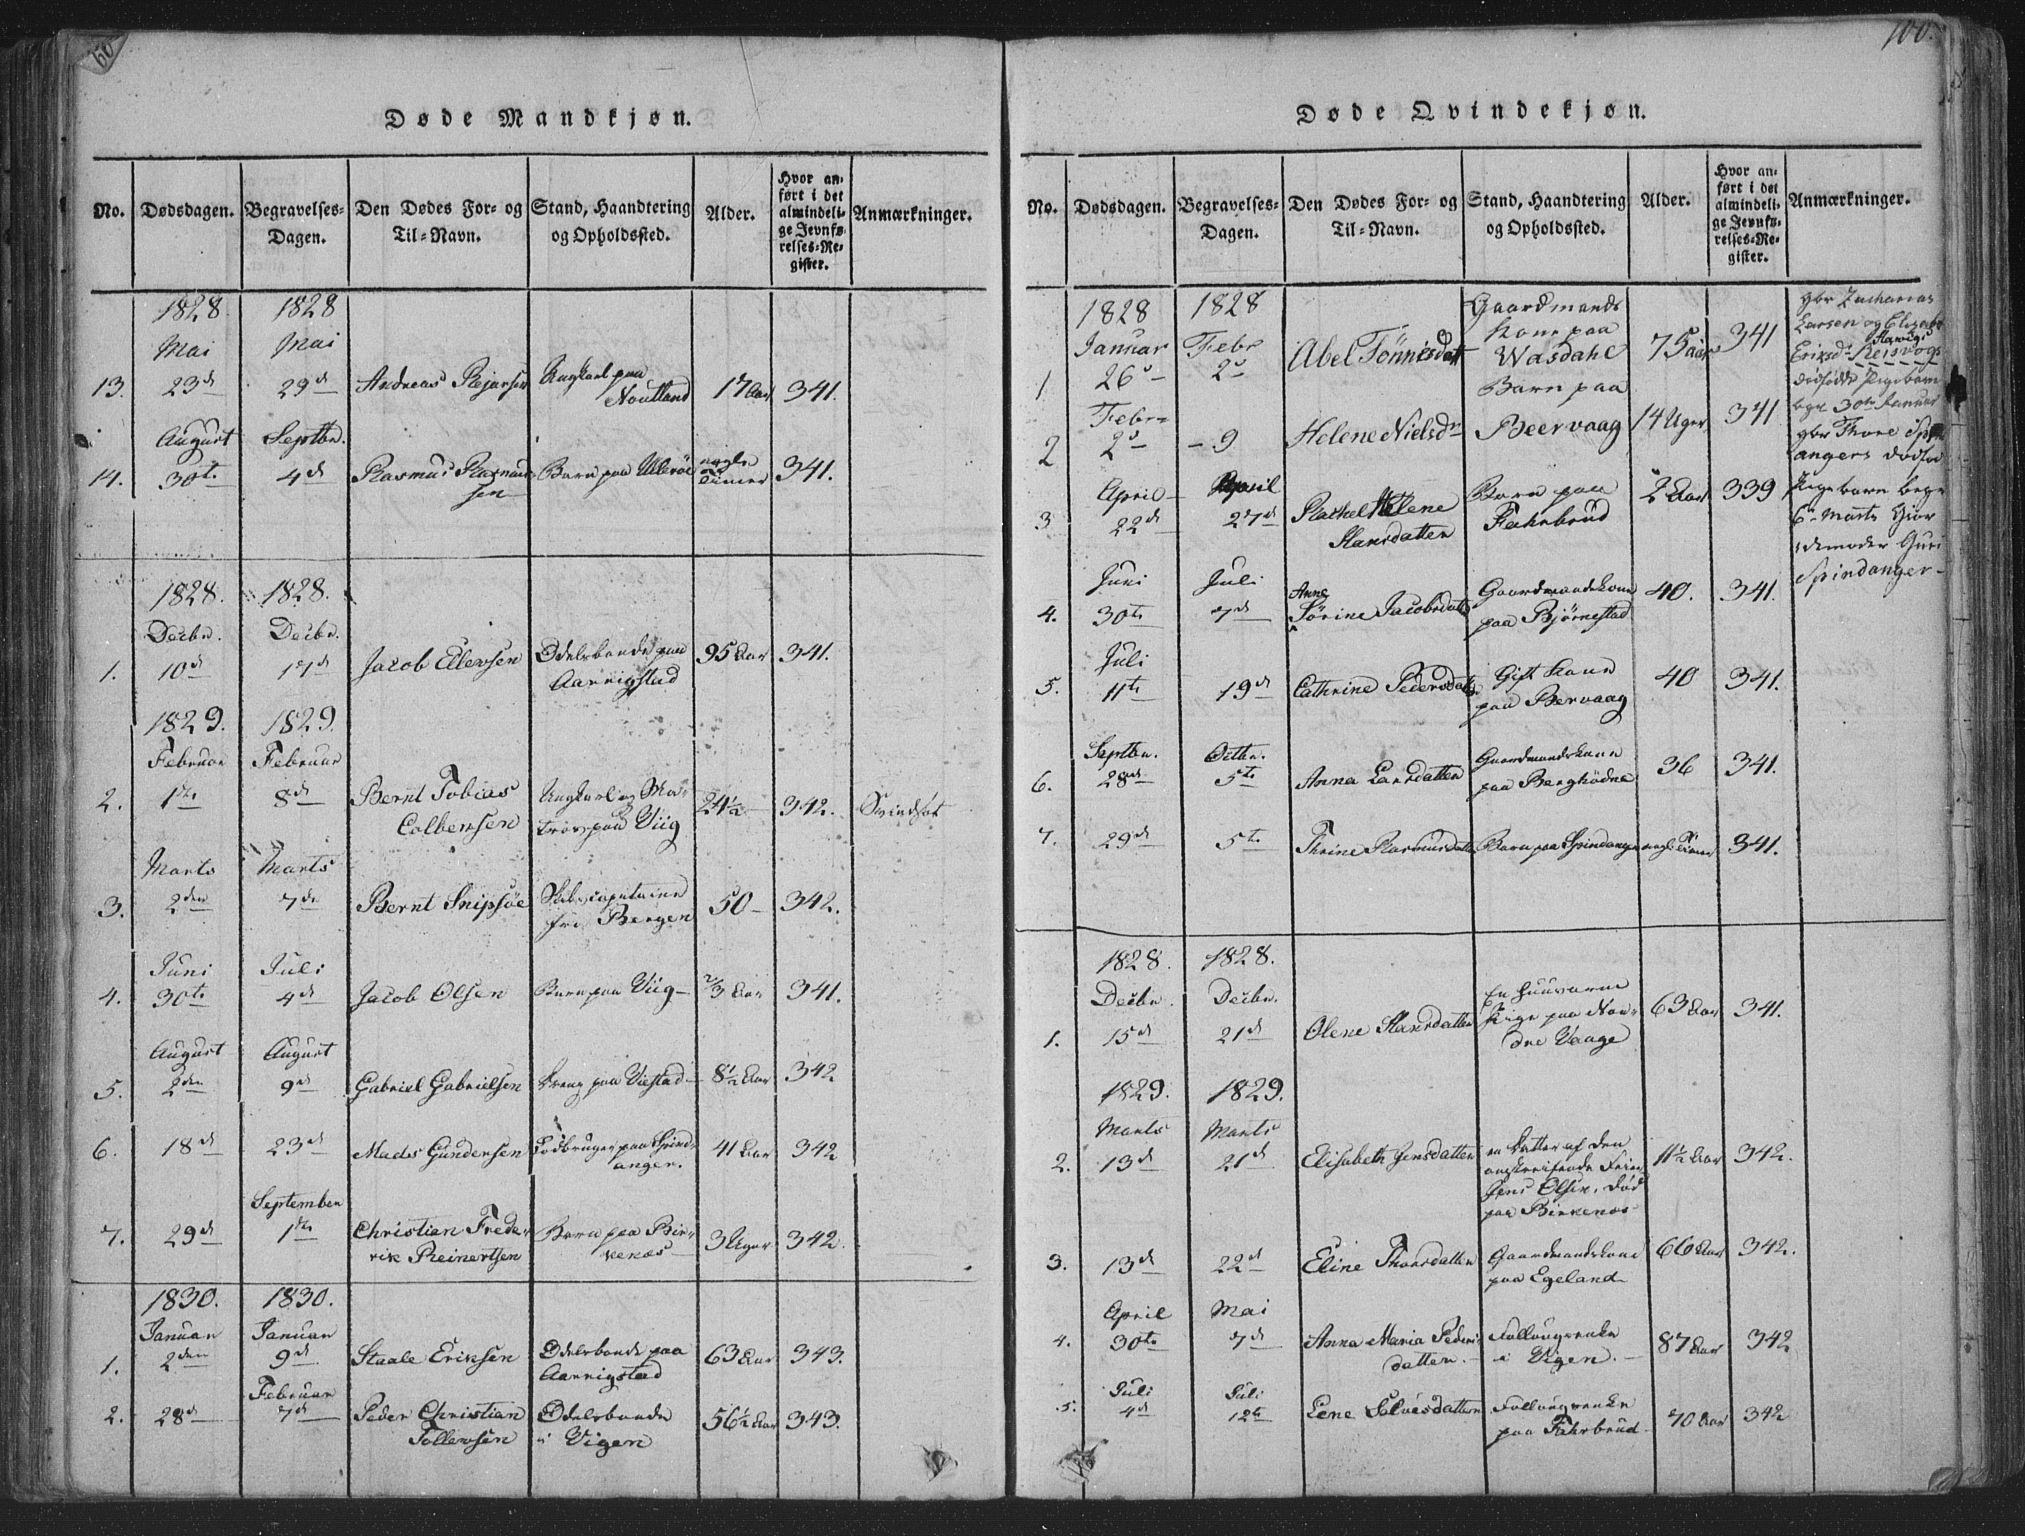 100.
Døde Mandkjøn.
No.
Dødsdagen.
Begravelses-
Dagen.
Den Dødes For- og
Til-Navn.
Stand, Haandtering
og Opholdssted.
Alder.
Hvor an-
ført i det
almindeli-
ge Jevnfø-
relses-Re-
gister.
Anmærkninger.
1828 1828
Mai Mai
13. 23d 29d Andreas Rejersen Ungkarl paa
Noutland 17 Aar 341.
August Septbr.
14. 30te 4d Rasmus Rasmus-
sen Barn paa Ullerøe nogle
Timer 341.
1828. 1828.
Decbr. Decbr.
1. 10d 17d Jacob Ellevsen Odelsbonde paa
Aarrigstad 95 Aar 341.
1829. 1829.
Februar Februar
2. 1te 8d Bernt Tobias
Colbensen Ungkarl og Ma-
tros paa Viig 24½ 342. Svindsot
Marts Marts
3. 2den 7de Bernt Snipsøe Skibscapitaine
fra Bergen 50 342.
Juni Juli
4. 30te 4d Jacob Olsen Barn paa Viig 2/3 Aar 341.
August August
5. 2den 9d Gabriel Gabrielsen Dreng paa Viestad 8½ Aar 342
6. 18d 23d Mads Gundersen Lodbruger paa Spind-
anger. 41 Aar 342
September
7. 29d 1te Christian Frede-
rik Reinertsen Barn paa Bir-
kenæs 3 Uger 342.
1830. 1830.
Januar Januar
1. 2den 9d Staale Eriksen Odelsbonde paa
Aarrigstad 63 Aar 343.
Februar
2. 28d 7d Peder Christian
Tollevsen Odelsbonde
i Vigen 56½ Aar 343.
Døde Qvindekjøn.
No.
Dødsdagen.
Begravelses-
Dagen.
Den Dødes For- og
Til-Navn.
Stand, Haandtering
og Opholdssted.
Alder.
Hvor an-
ført i det
almindeli-
ge Jevnfø-
relses-Re-
gister.
Anmærkninger.
1828 1828 Gaardmands
Januar Febr Kone paa
1 26 2 Abel Tönnesdatt Wasdahl 75 aar 341
Febr Barn paa
2 2 9 Helene Nielsdr Beervaag 14 Uger 341
April April
3 22d 27d Rachel Helene
Hansdatten Barn paa
Fahrbrud 2 Aar 339
Juni Juli
4. 30te 7d Anne
Sørine Jacobsdatt Gaardmandskone
paa Bjørnestad 40. 341.
Juli
5. 11te 19d Cathrine Pedersdatt Gift Kone
paa Bervaag 40 341.
Septbr. Octbr.
6. 28de 5te Anna Larsdatten Gaardmandskone
paa Berghödne 36 341.
7. 29d 5te Thrine Rasmusdatt Barn paa Spindanger nogle Timer 341.
Zacharias
Larsen og Elisabet
Eriksd:
dødfødte Pigebarn
begr 30te Januar
Thore Spind-
angers dødfød
Pigebarn begr
6 Marts Gior
demoder Guri
Spindanger
1828. 1828.
Decbr. Decbr.
1. 15d 21d Olene Hansdatten
Pige paa Nor-
dre Vaage 63 Aar 341.
1829. 1829.
Marts Marts
2. 13d 21d Elisabeth Jensdatten en Datter af den
omstreifende
Jens Olsen, død
paa Birkenæs 11½ Aar 342.
3. 13d 22d Eline Thorsdatten Gaardmandskone
paa Egeland 66 Aar 342.
April Mai
4. 30te 7d Anna Maria Peders-
datten. Follougsenke
i Vigen. 87 Aar 342
Juli Juli
5. 4d 12te Lene Salvesdatten Follougsenke
paa Fahrbrud 70 Aar 342